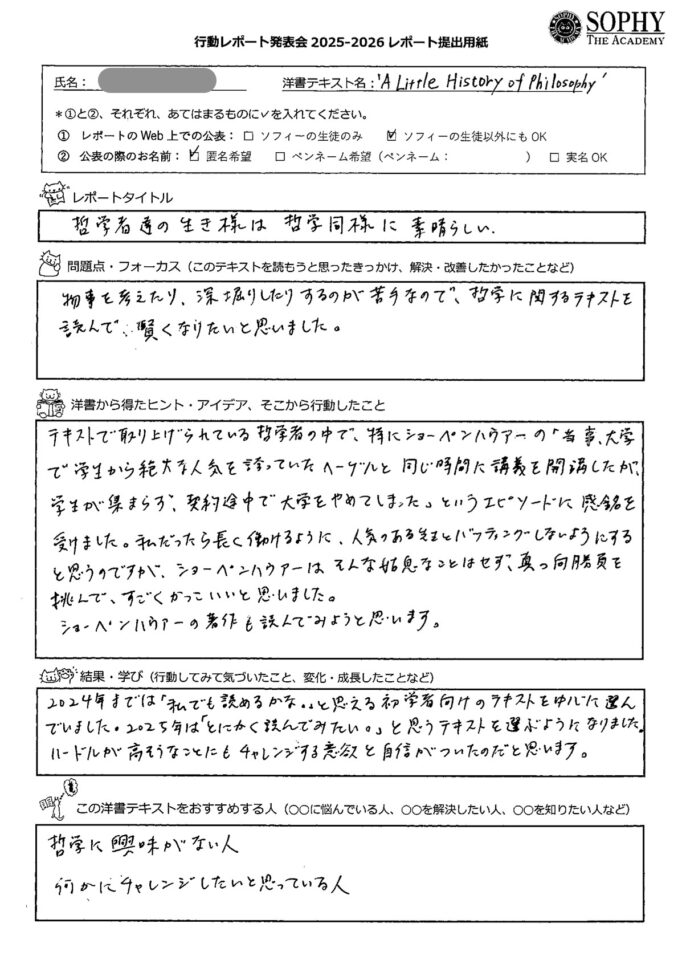 SOPHY
THE ACADEMY
行動レポート発表会 2025-2026 レポート提出用紙
氏名： 洋書テキスト名：'A Little History of Philosophy'
＊①と②、それぞれ、あてはまるものに✓を入れてください。
① レポートの Web 上での公表：□ ソフィーの生徒のみ ☑ ソフィーの生徒以外にも OK
② 公表の際のお名前：☑ 匿名希望 □ ペンネーム希望（ペンネーム： ） □ 実名 OK
レポートタイトル
哲学者達の生き様は 哲学同様に 素晴らしい.
問題点・フォーカス（このテキストを読もうと思ったきっかけ、解決・改善したかったことなど）
物事を考えたり、深堀りしたりするのが苦手なので、哲学に関するテキストを
読んで、賢くなりたいと思いました。
洋書から得たヒント・アイデア、そこから行動したこと
テキストで取り上げられている哲学者の中で、特にショーペンハウアーの「当事、大学
で学生から絶大な人気を誇っていたヘーゲルと同じ時間に講義を開講したが、
学生が集まらず、契約途中で大学をやめてしまった」というエピソードに感銘を
受けました。私だったら長く働けるように、人気のある先生とバッティングしないようにする
と思うのですが、ショーペンハウアーはそんな姑息なことはせず、真っ向勝負を
挑んで、すごくかっこいいと思いました。
ショーペンハウアーの著作も読んでみようと思います。
結果・学び（行動してみて気づいたこと、変化・成長したことなど）
2024年までは「私でも読めるかな。」と思える初学者向けのテキストを中心に選ん
でいました。2025年は「とにかく読んでみたい。」と思うテキストを選ぶようになりました。
ハードルが高そうなことにもチャレンジする意欲と自信がついたのだと思います。
この洋書テキストをおすすめする人（〇〇に悩んでいる人、〇〇を解決したい人、〇〇を知りたい人など）
哲学に興味がない人
何かにチャレンジしたいと思っている人